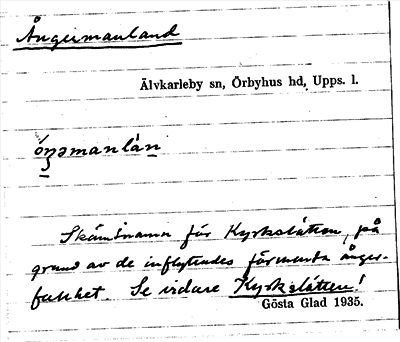 Ångermanland
Älvkarleby sn, Örbyhus hd, Upps. l.
óŋəmanlàn
Skämtnamn för Kyrkslätten, på
grund av de inflyttades förmenta ånger-
fullhet. Se vidare Kyrkslätten!
Gösta Glad 1935.